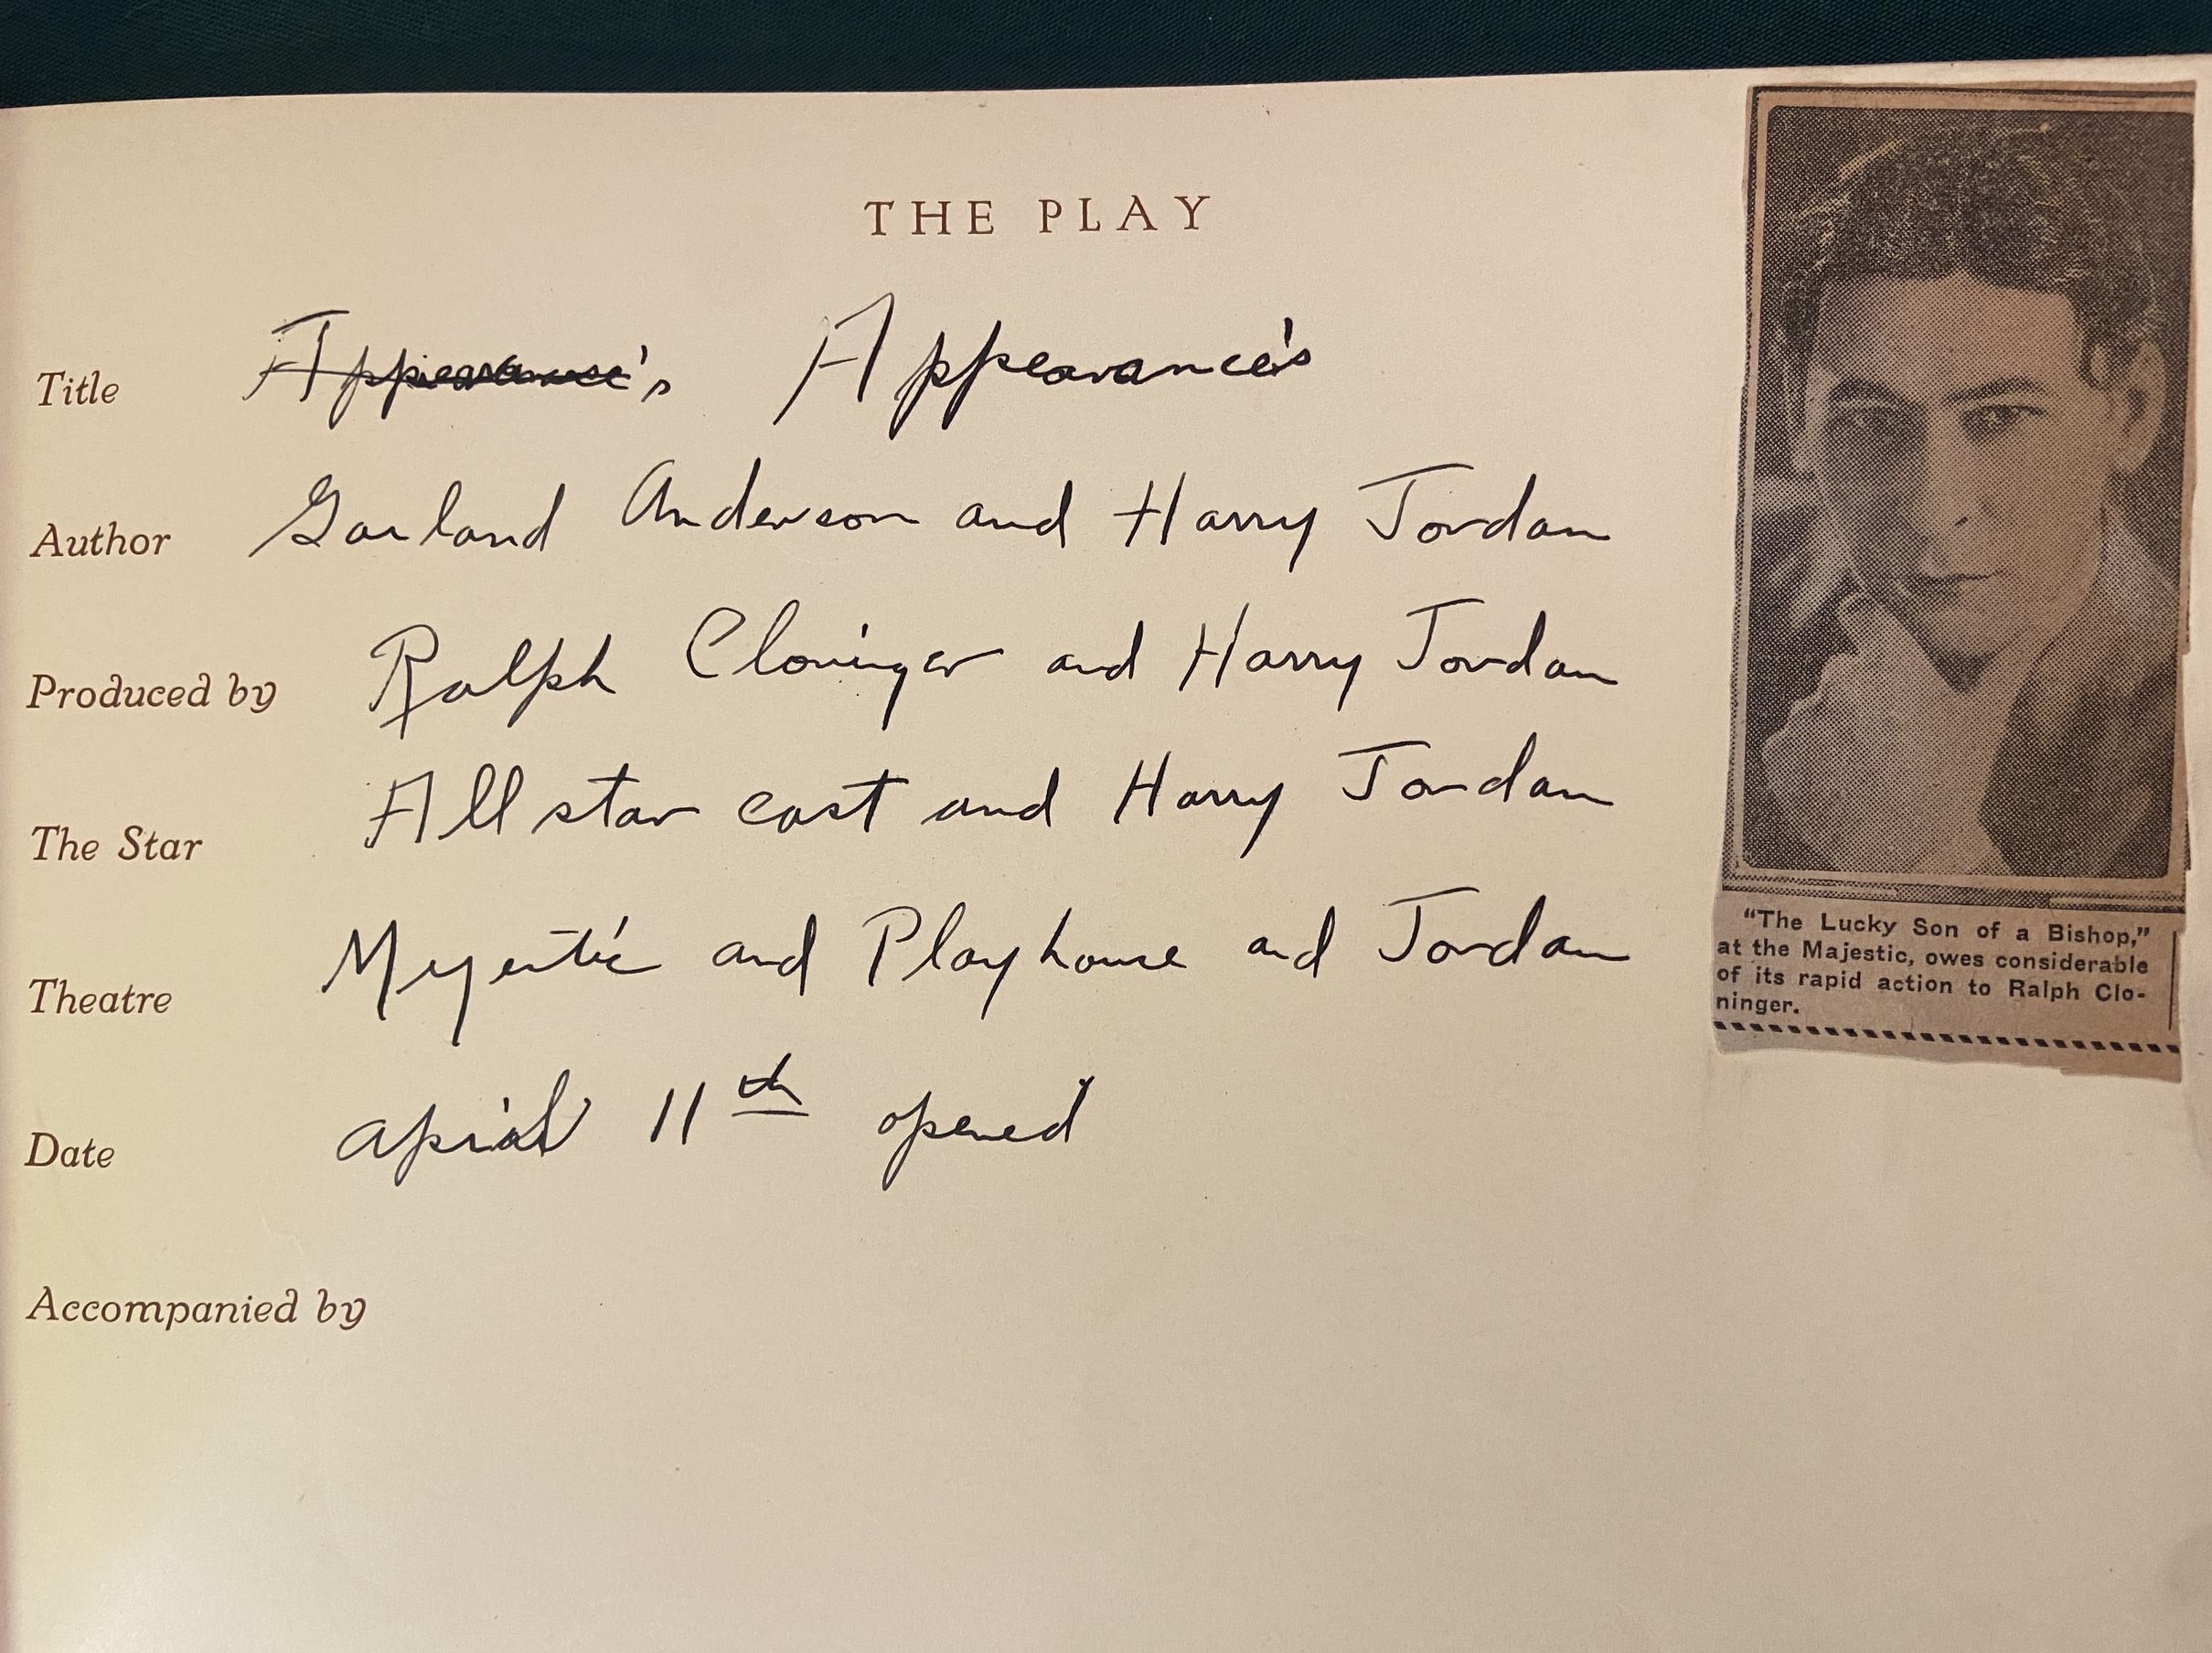 THE PLAY
Title Appearance's Appearance's
Author Garland Anderson and Harry Jordan
Produced by Ralph Cloninger and Harry Jordan
The Star All star cast and Harry Jordan
Theatre Mejestic and Playhouse and Jordan
Date april 11th opened
Accompanied by
"The Lucky Son of a Bishop,"
at the Majestic, owes considerable
of its rapid action to Ralph Clo-
ninger.